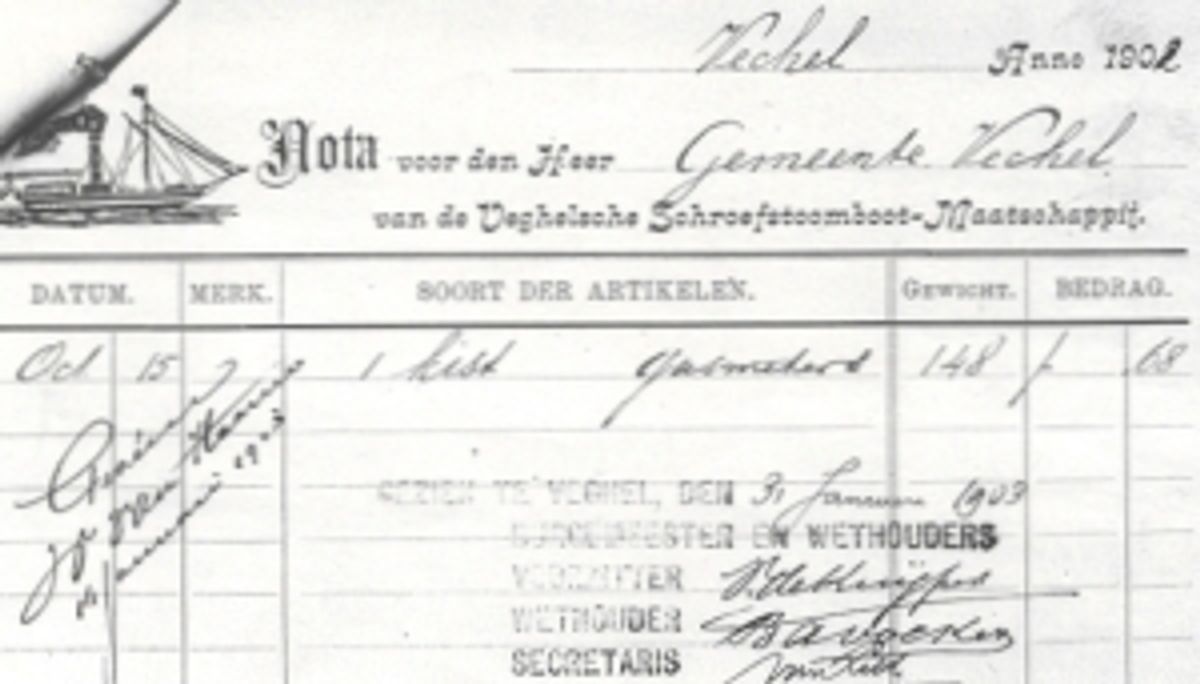 Vechel Anno 1902
Nota voor den Heer Gemeente Vechel
van de Veghelsche Schroefstoomboot-Maatschappij.
DATUM. MERK. SOORT DER ARTIKELEN. GEWICHT. BEDRAG.
Oct 15 1 kist gasmeters 148 f 68
GEZIEN TE VEGHEL, DEN 31 Januari 1903
BURGEMEESTER EN WETHOUDERS
VOORZITTER
WETHOUDER
SECRETARIS
1903